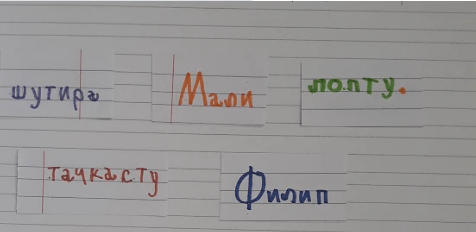 шутира Мали лопту.
тачкасту Филип